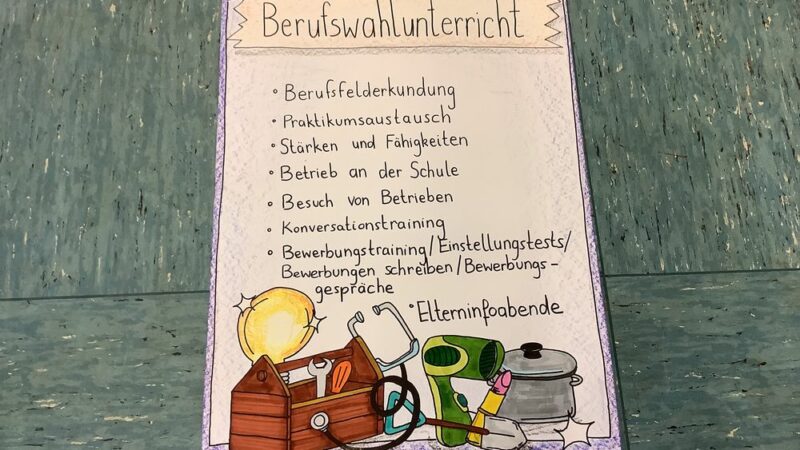 Berufswahlunterricht
° Berufsfelderkundung
° Praktikumsaustausch
° Stärken und Fähigkeiten
° Betrieb an der Schule
° Besuch von Betrieben
° Konversationstraining
° Bewerbungstraining/Einstellungstests/
Bewerbungen schreiben/Bewerbungs-
gespräche
° Elterninfoabende